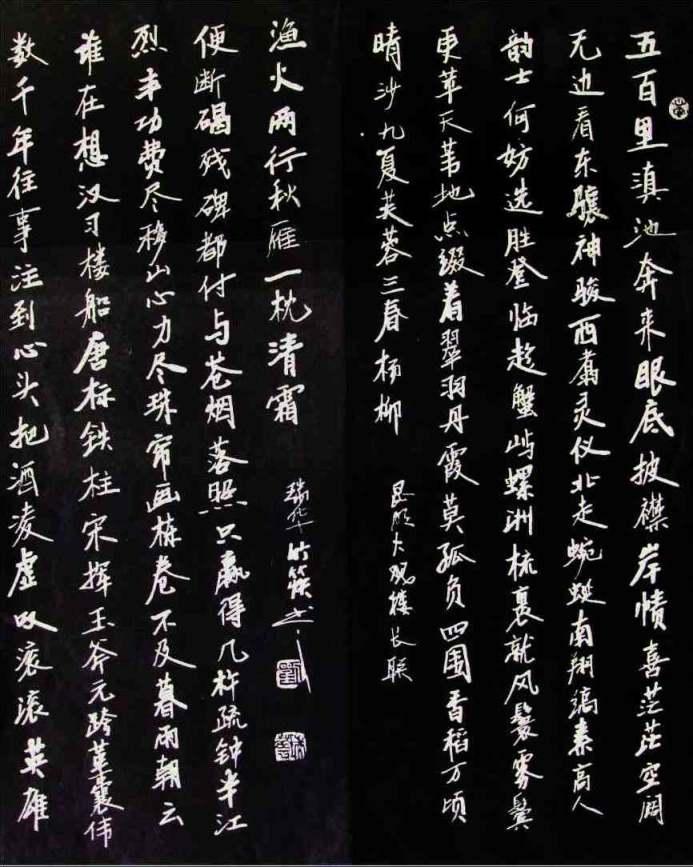 五百里滇池奔来眼底披襟岸帻喜茫茫空阔
无边看东骧神骏西翥灵仪北走蜿蜒南翔缟素高人
韵士何妨选胜登临趁蟹屿螺洲梳裹就风鬟雾鬓
更苹天苇地点缀着翠羽丹霞莫孤负四围香稻万顷
晴沙九夏芙蓉三春杨柳
昆明大观楼长联
数千年往事注到心头把酒凌虚叹滚滚英雄
谁在想汉习楼船唐标铁柱宋挥玉斧元跨革囊伟
烈丰功费尽移山心力尽珠帘画栋卷不及暮雨朝云
便断碣残碑都付与苍烟落照只赢得几杵疏钟半江
渔火两行秋雁一枕清霜
瑞华